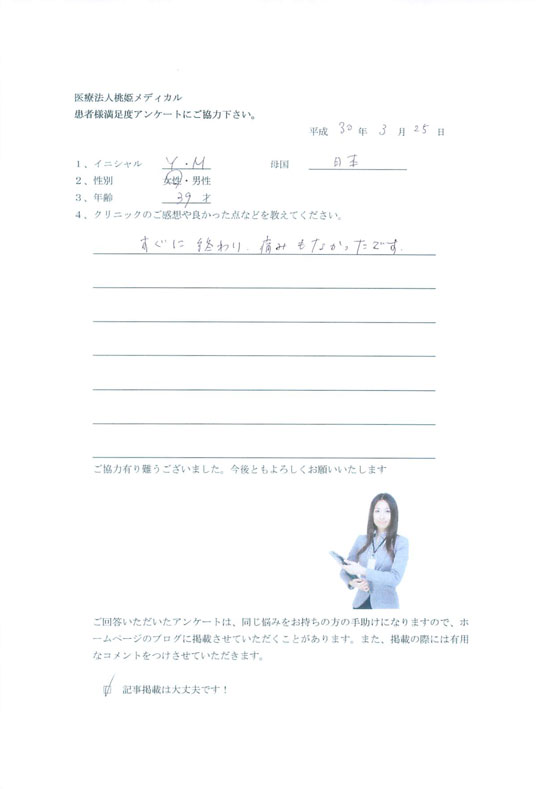 医療法人桃姫メディカル
患者様満足度アンケートにご協力下さい。
平成 30 年 3 月 25 日
1、イニシャル Y・M 母国 日本
2、性別 女性・男性
3、年齢 39才
4、クリニックのご感想や良かった点などを教えてください。
すぐに終わり、痛みもなかったです。
ご協力有り難うございました。今後ともよろしくお願いいたします
ご回答いただいたアンケートは、同じ悩みをお持ちの方の手助けになりますので、ホ
ームページのブログに掲載させていただくことがあります。また、掲載の際には有用
なコメントをつけさせていただきます。
記事掲載は大丈夫です！